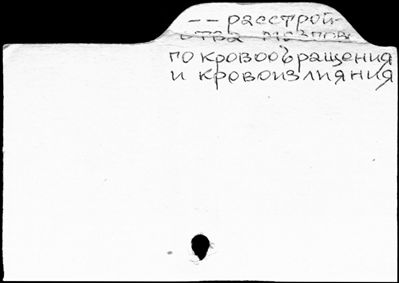 -- расстрой-
ства мозгов.
го кровообращения
и кровоизлияния